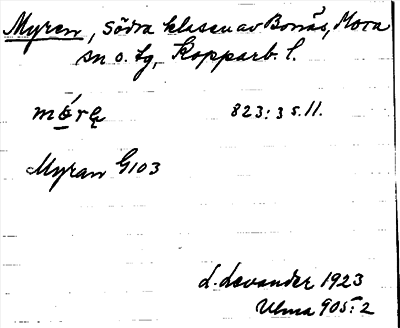 Myren, södra klasen av Bonäs, Mora
sn o. tg, Kopparb. l.
823:3 s. 11.
Myran G103
L. Levander 1923
Ulma 905:2